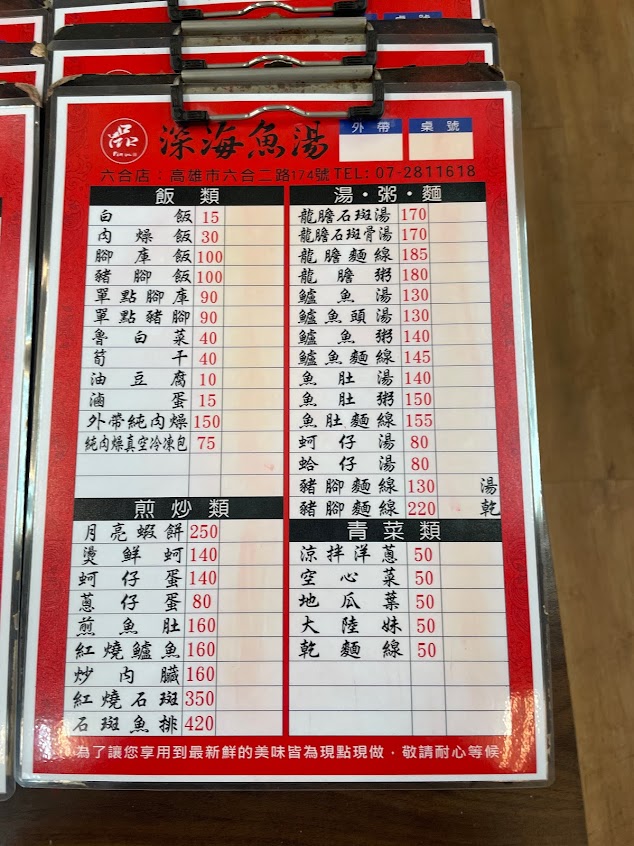 桌號
品
深海魚湯
外帶
桌號
六合店：高雄市六合二路174號TEL: 07-2811618
飯類
白飯 15
肉燥飯 30
腳庫飯 100
豬腳飯 100
單點腳庫 90
單點豬腳 90
魯白菜 40
筍干 40
油豆腐 10
滷蛋 15
外帶純肉燥 150
純肉燥真空冷凍包 75
煎炒類
月亮蝦餅 250
燙鮮蚵 140
蚵仔蛋 140
蔥仔蛋 80
煎魚肚 160
紅燒鱸魚 160
炒內臟 160
紅燒石斑 350
石斑魚排 420
湯·粥·麵
龍膽石斑湯 170
龍膽石斑骨湯 170
龍膽麵線 185
龍膽粥 180
鱸魚湯 130
鱸魚頭湯 130
鱸魚粥 140
鱸魚麵線 145
魚肚湯 140
魚肚粥 150
魚肚麵線 155
蚵仔湯 80
蛤仔湯 80
豬腳麵線 130 湯
豬腳麵線 220 乾
青菜類
涼拌洋蔥 50
空心菜 50
地瓜葉 50
大陸妹 50
乾麵線 50
為了讓您享用到最新鮮的美味皆為現點現做，敬請耐心等候